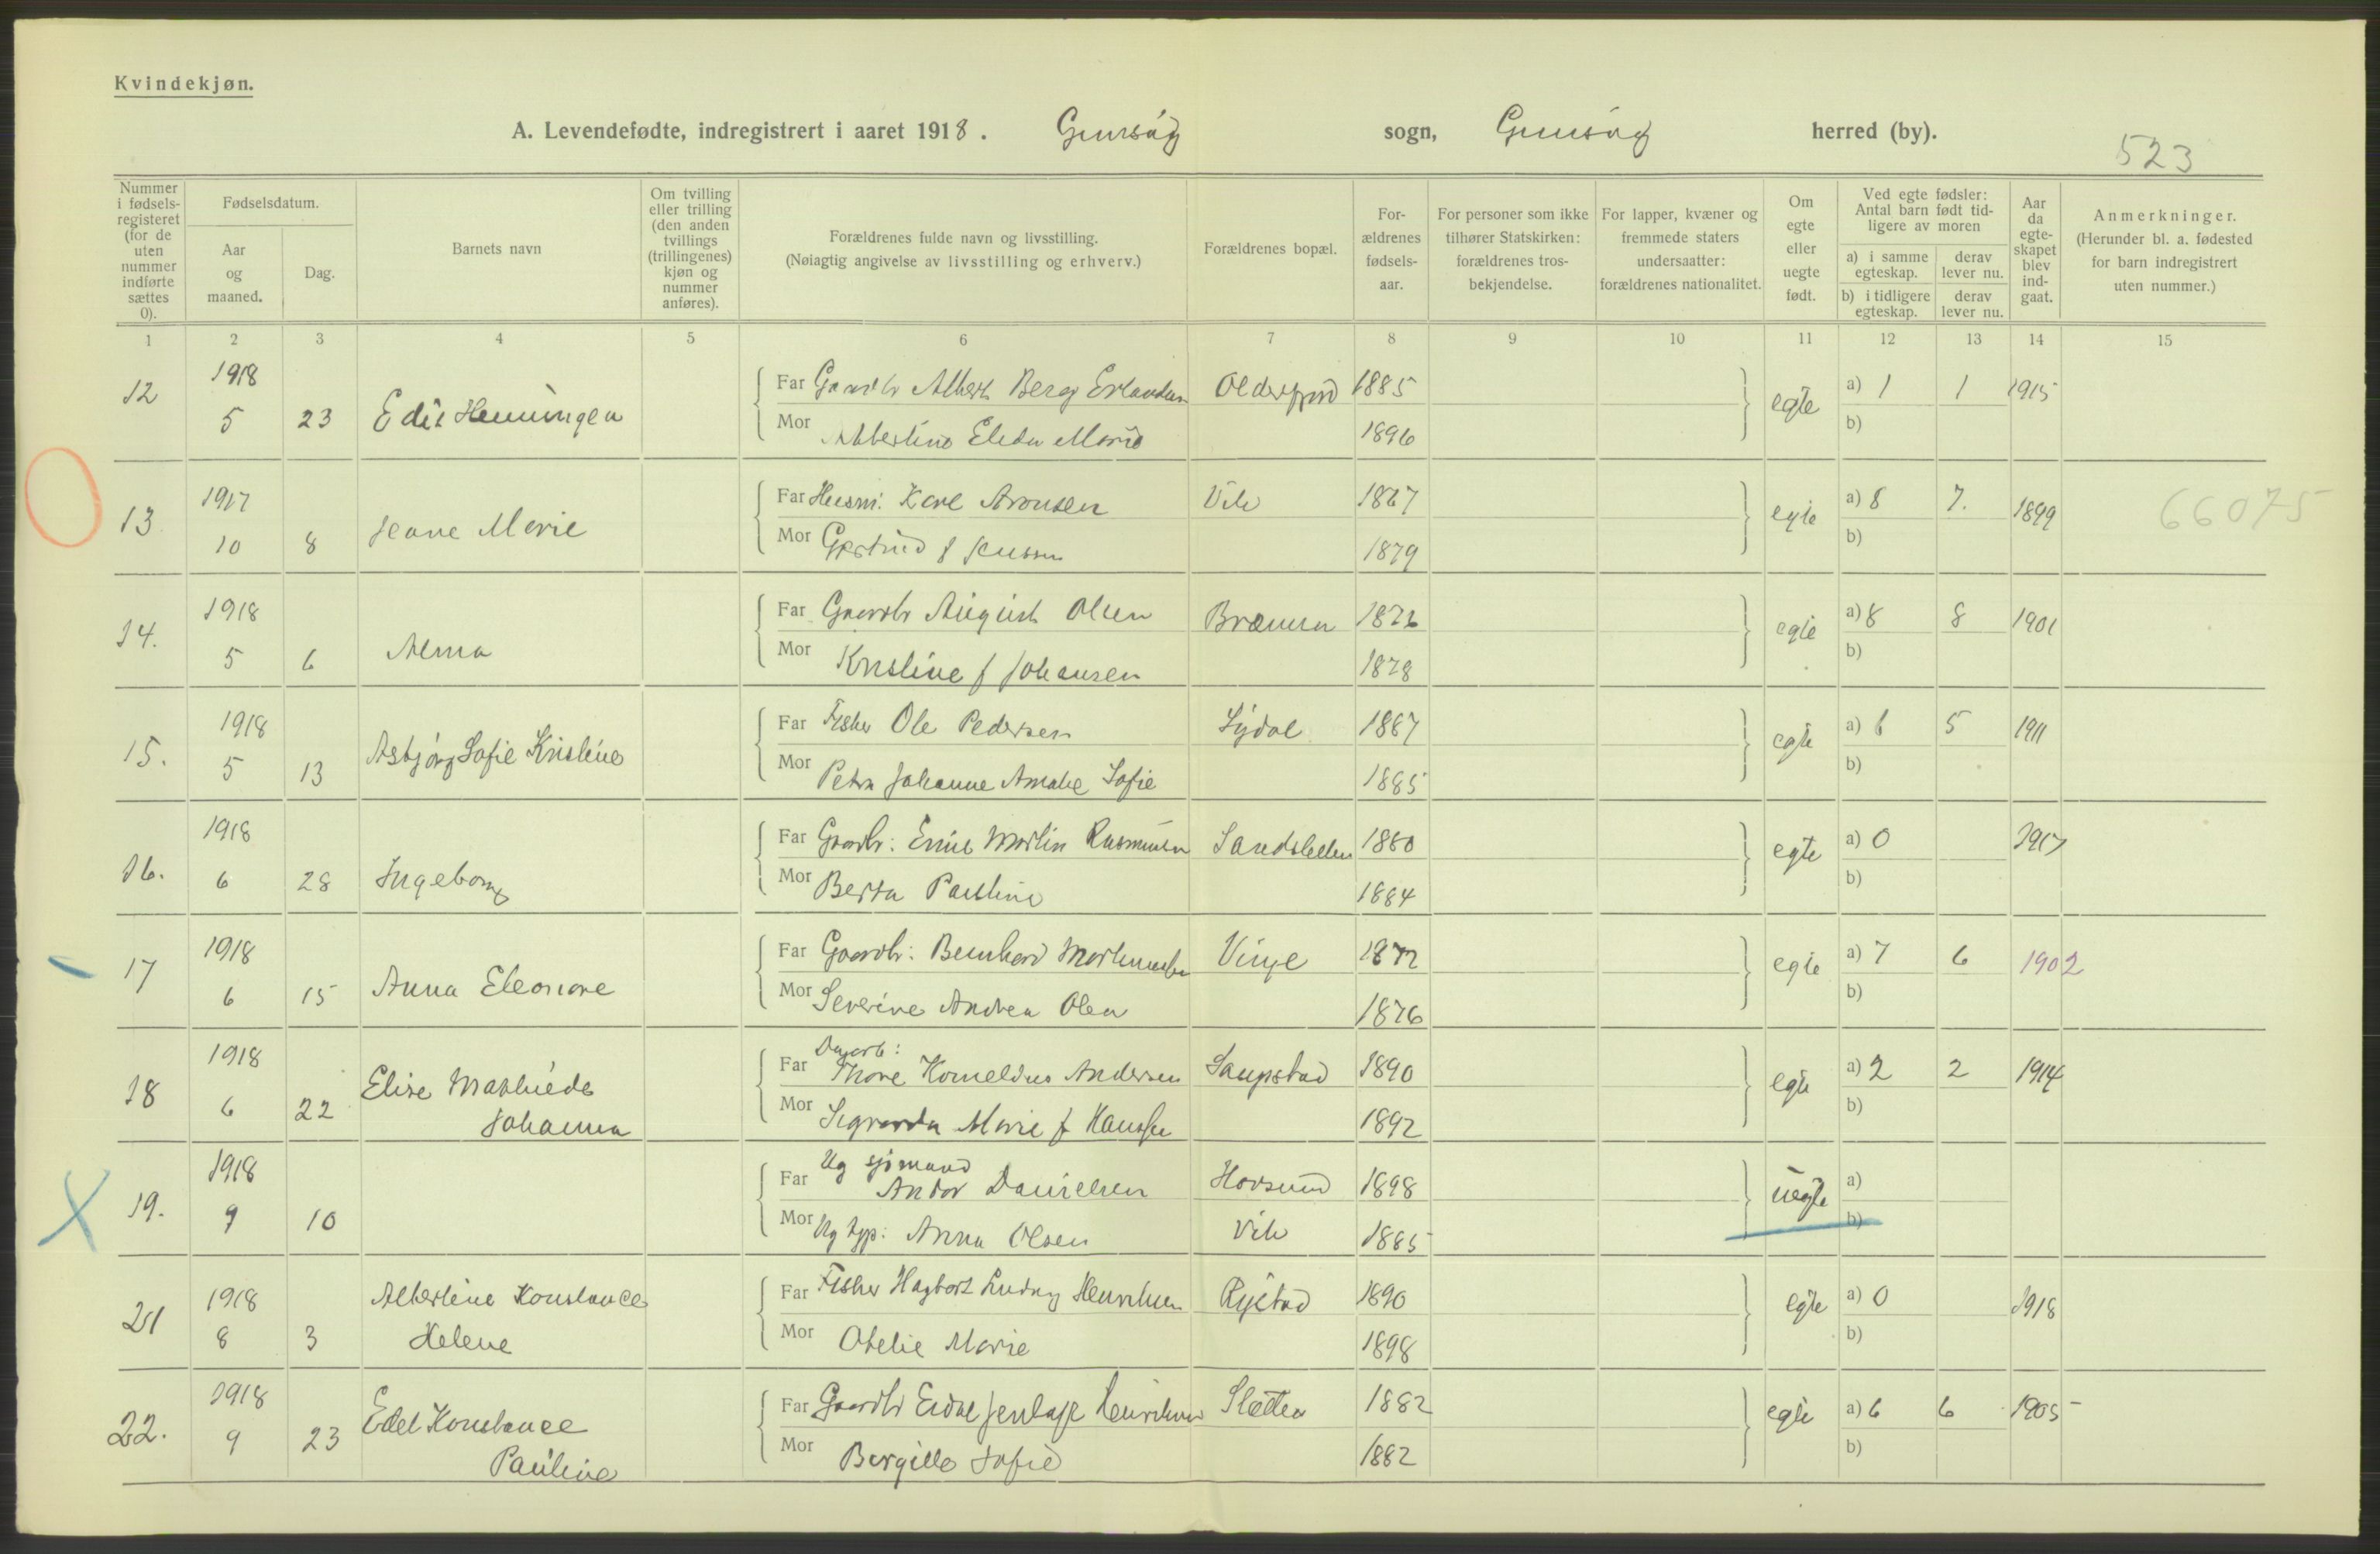 Kvindekjøn.
A. Levendefødte, indregistrert i aaret 1918. Gimsøy sogn, Gimsøy herred (by).
523
Nummer i fødselsregisteret (for de uten nummer indførte sættes 0).
Fødselsdatum.
Aar og maaned.
Dag.
Barnets navn
Om tvilling eller trilling (den anden tvillings (trillingenes) kjøn og nummer anføres).
Forældrenes fulde navn og livsstilling.
(Nøiagtig angivelse av livsstilling og erhverv.)
Forældrenes bopæl.
Forældrenes fødselsaar.
For personer som ikke tilhører Statskirken: forældrenes trosbekjendelse.
For lapper, kvæner og fremmede staters undersaatter: forældrenes nationalitet.
Om egte eller uegte født.
Ved egte fødsler: Antal barn født tidligere av moren
a) i samme egteskap.
derav lever nu.
b) i tidligere egteskap.
derav lever nu.
Aar da egteskapet blev indgaat.
Anmerkninger.
(Herunder bl. a. fødested for barn indregistrert uten nummer.)
1 2 3 4 5 6 7 8 9 10 11 12 13 14 15
12 1918 5 23 Edit Henningea
Far Gaardbr Albert Berg Erlandsen 1885 egte a) 1 1 1915
Mor Albertine Eleda Marie 1896 b)
13 1917 10 8 Jeane Marie
Far Husm: Karl Aronsen Vik 1867 egte a) 8 7. 1899 66075
Mor Gjertrud f Jenssen 1879 b)
14. 1918 5 6 Alma
Far Gaardbr August Olsen Brenna 1876 egte a) 8 8 1901
Mor Kristine f Johansen 1878 b)
15. 1918 5 13 Asbjørg Sofie Kristine
Far Fisker Ole Pedersen Sydal 1887 egte a) 6 5 1911
Mor Petra Johanne Amalie Sofie 1885 b)
16. 1918 6 28 Ingeborg
Far Gaardbr: Martin Rasmussen 1880 egte a) 0 1917
Mor Berta Pauline 1884 b)
17 1918 6 15 Anna Eleonore
Far Gaardbr: Bernhard Martinussen Vinje 1872 egte a) 7 6 1902
Mor Severine Andrea Olea 1876 b)
18 1918 6 22 Elise Mathilde Johanna
Far Dagarb: Thore Korneldus Andersen Saupstad 1890 egte a) 2 2 1914
Mor Sigvarda Marie f Hanssen 1892 b)
19. 1918 9 10
Far Ug sjømand Andor Danielsen Hovsund 1898 uegte a)
Mor Ug tjp: Anna Olsen Vik 1885 b)
21 1918 8 3 Albertine Konstance Helene
Far Fisker Hagbart Ludvig Henriksen Rystad 1890 egte a) 0 1918
Mor Otelie Marie 1898 b)
22. 1918 9 23 Edel Konstance Pauline
Far Gaardbr Eidal Jentoft Henriksen Sletten 1882 egte a) 6 6 1905
Mor Bergitte Sofie 1882 b)